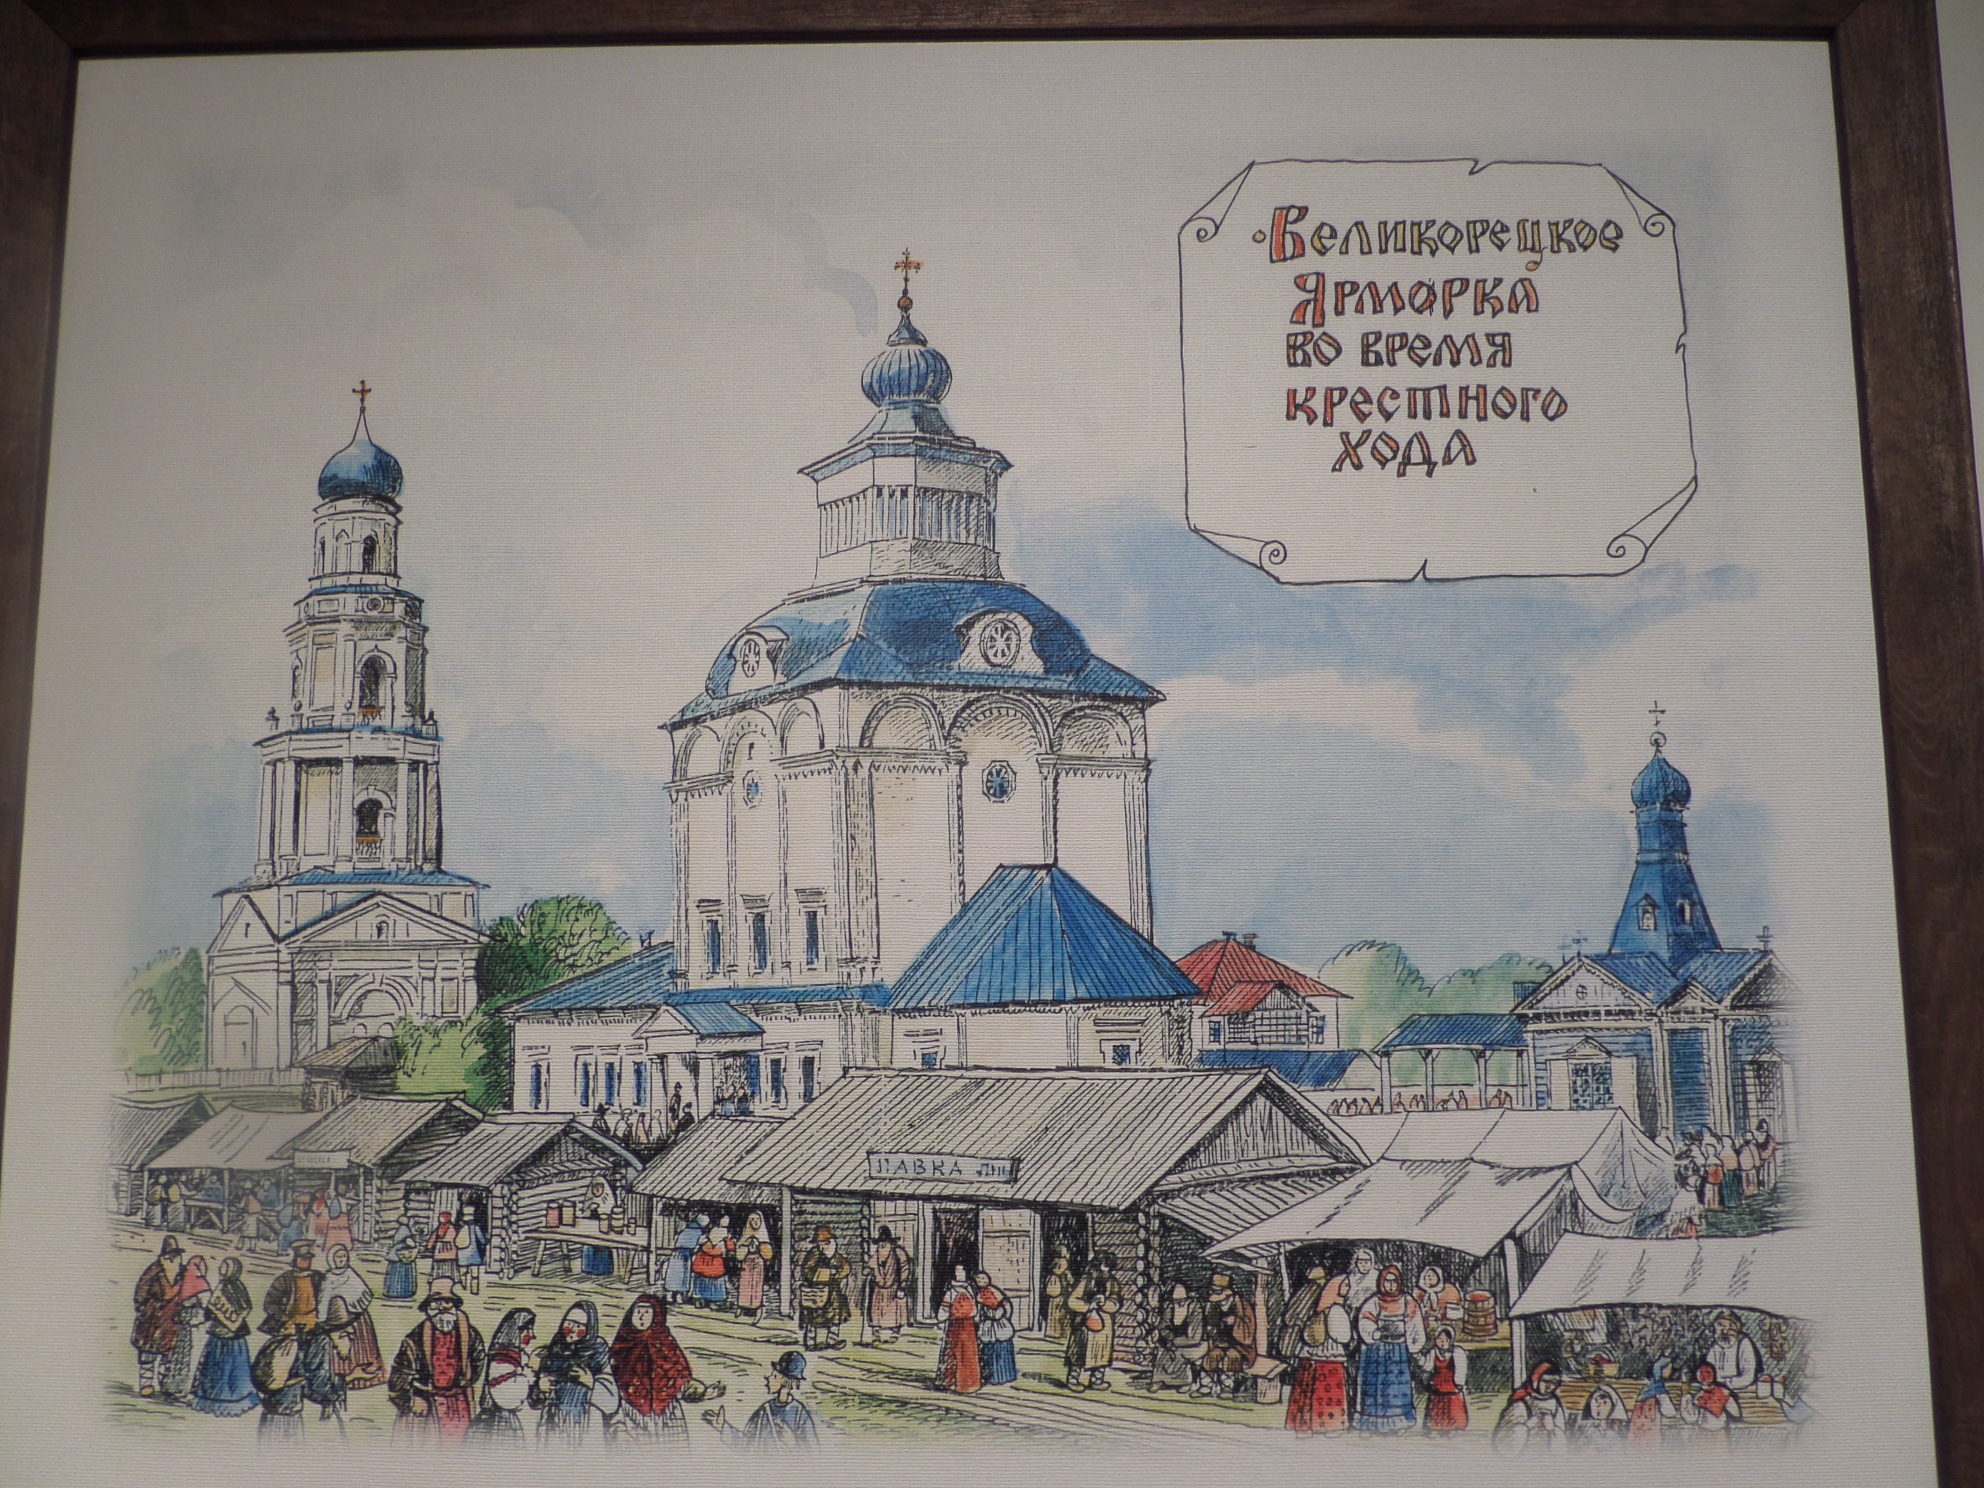 ·Великорецкое
Ярморка
во время
крестного
хода
ЛАВКА